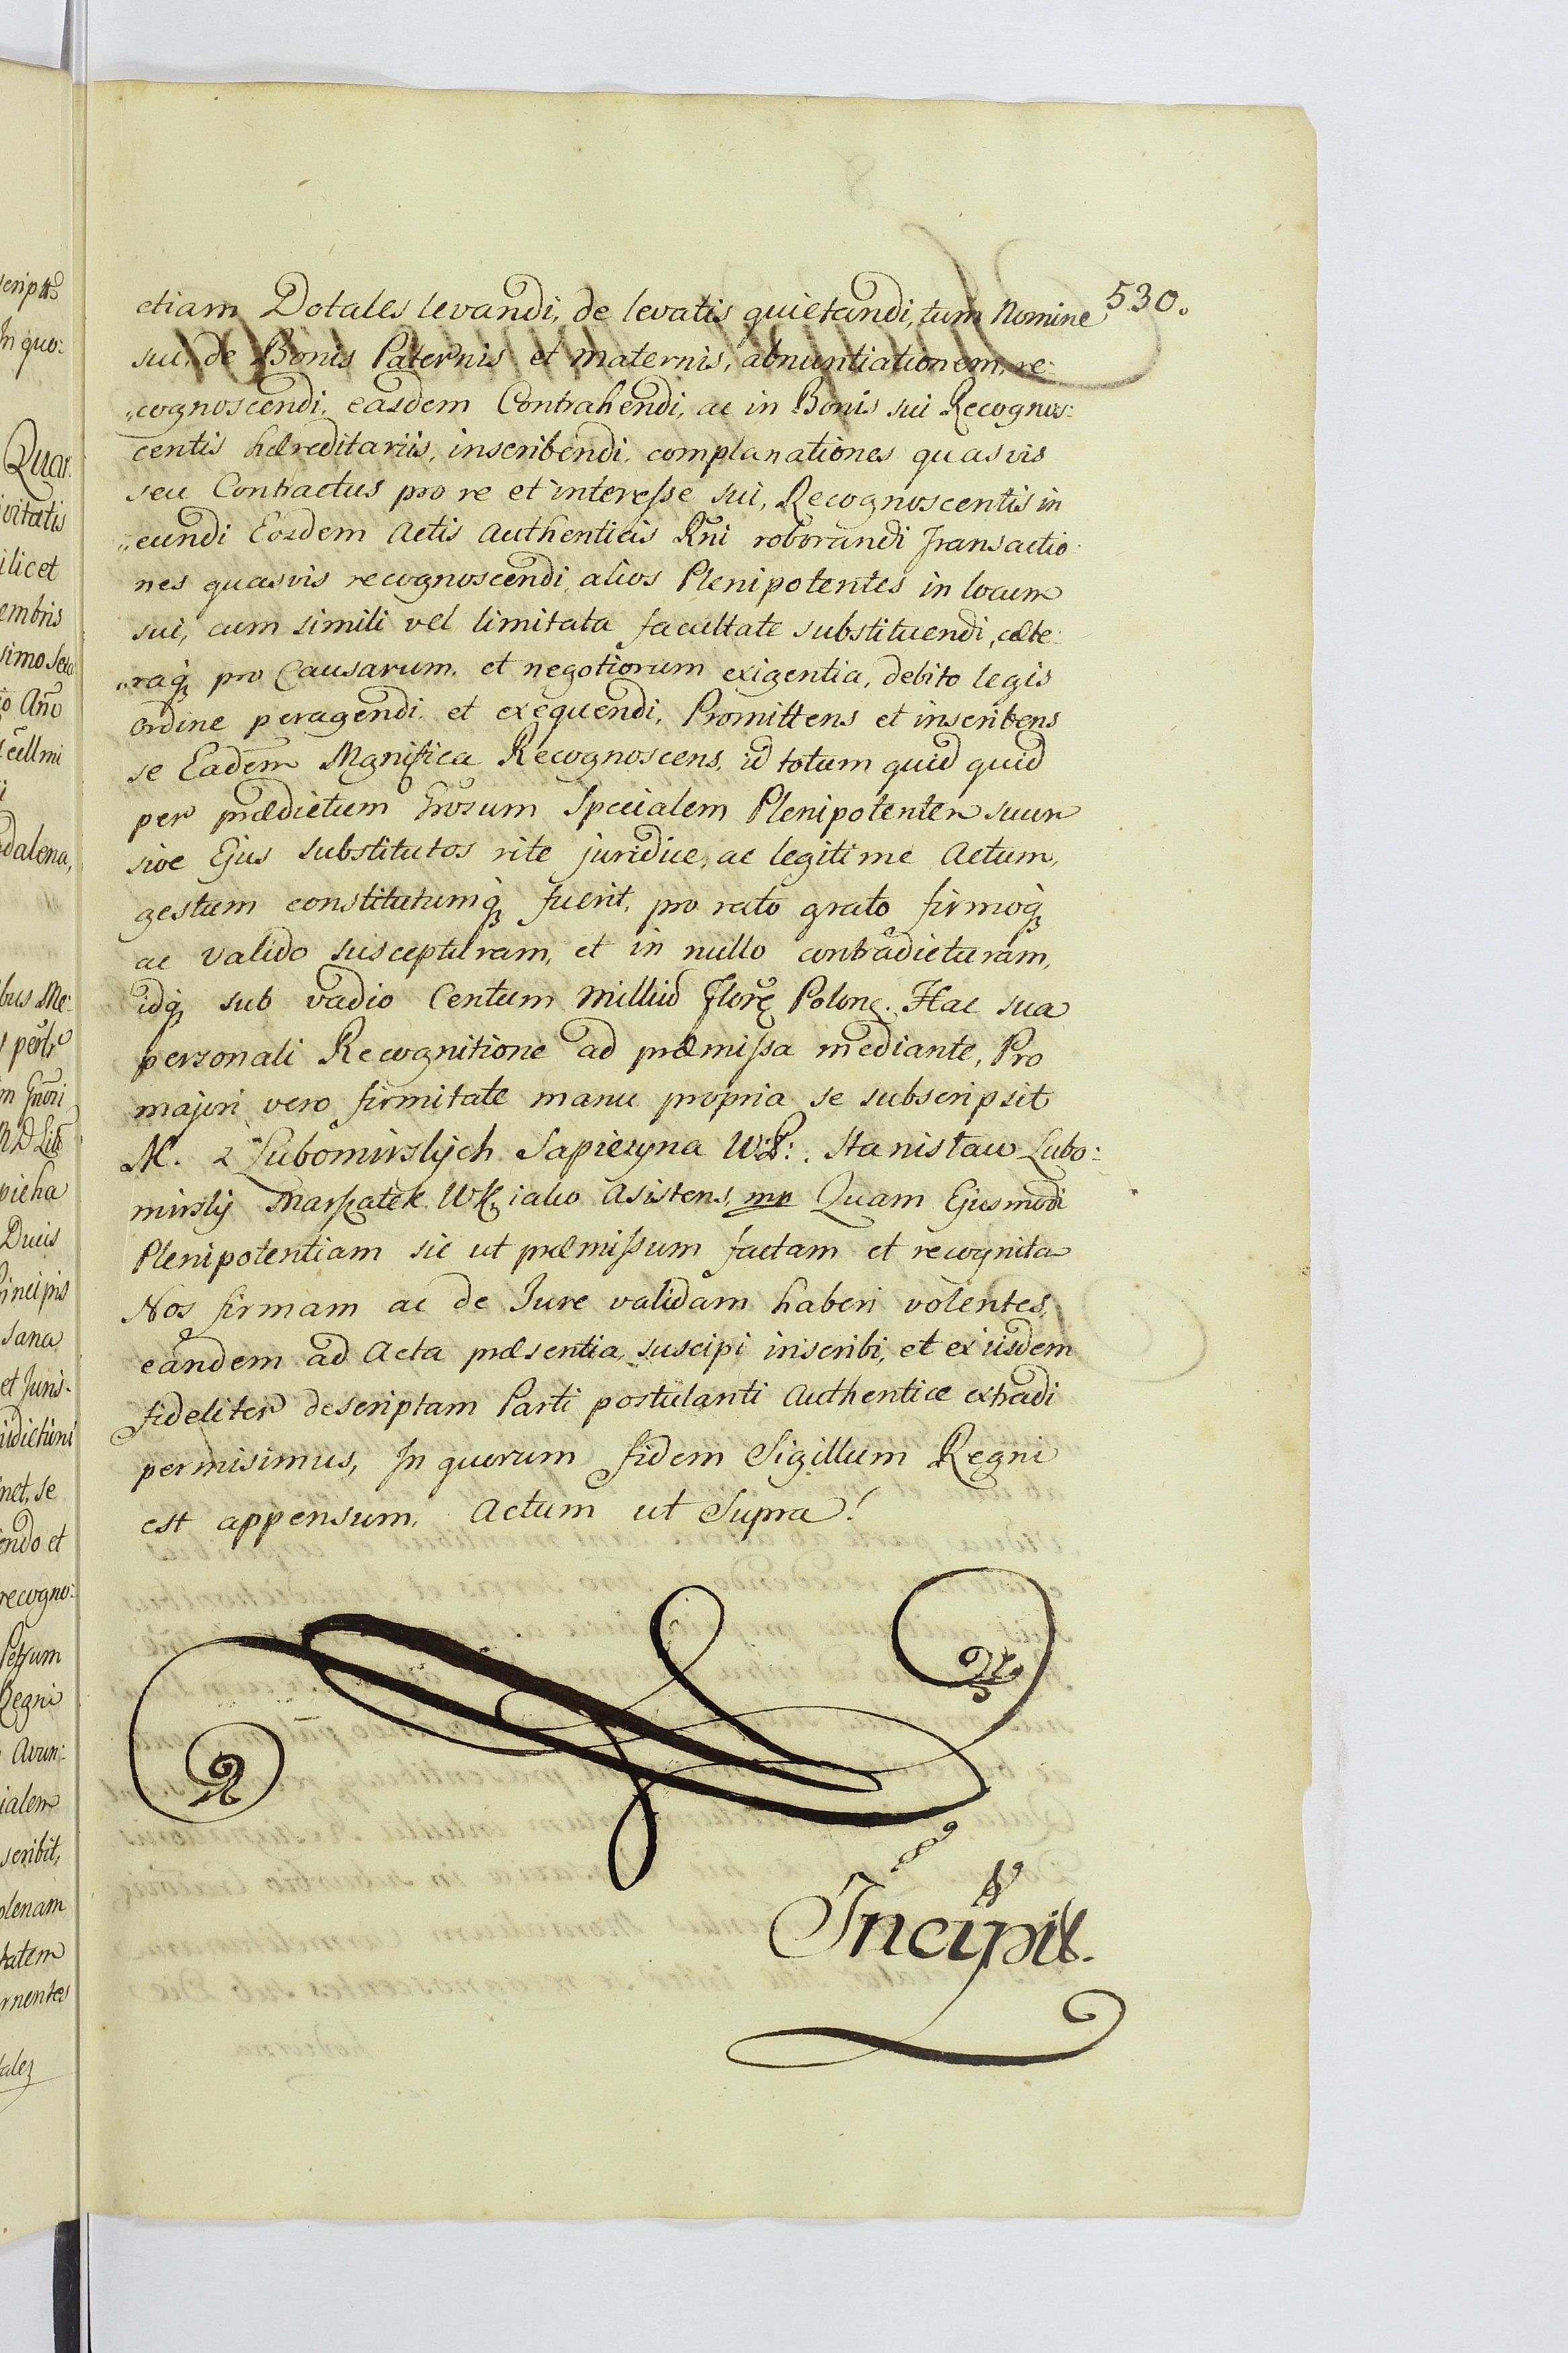 530.
etiam Dotales levandi, de levatis quietandi, tum Nomine
sui, de Bonis Paternis et maternis, abnuntiationem, re:
„cognoscendi, easdem Contrahendi, ac in Bonis sui Recognos:
centis hæreditariis, inscribendi, complanationes quasvis
seu Contractus pro re et interesse sui, Recognoscentis in
„eundi Eosdem Actis Authenticis Rñi roborandi Transactio:
nes quasvis recognoscendi, alios Plenipotentes in locum
sui, cum simili vel limitata facultate substituendi, cæte:
„raq; pro Causarum, et negotiorum exigentia, debito legis
ordine peragendi, et exequendi, Promittens et inscribens
se Eadem Mgnifica Recognoscens, id totum quid quid
per prædictum Gñosum Specialem Plenipotentem suum
sive Ejus substitutos rite juridice, ac legitime Actum,
gestum constitutumq; fuerit, pro rato grato firmoq;
ac valido suscepturam, et in nullo contradicturam,
idq; sub vadio Centum Milliũ Florẽ Polonẽ. Hac sua
personali Recognitione ad præmissa mediante, Pro
majori vero firmitate manu propria se subscripsit
M. z Lubomirskych Sapiezyna W: L: . Stanisław Lubo:
mirsky Marszałek WK, iako Asistens, mp Quam Ejusmodi
Plenipotentiam sic ut præmissum factam et recognita
Nos firmam ac de Jure validam haberi volentes,
eandem ad Acta præsentia, suscipi inscribi, et ex iisdem
fideliter descriptam Parti postulanti Authenticæ extradi
permisimus, In quorum fidem Sigillum Regni
est appensum. Actum ut Supra!
Incipit.